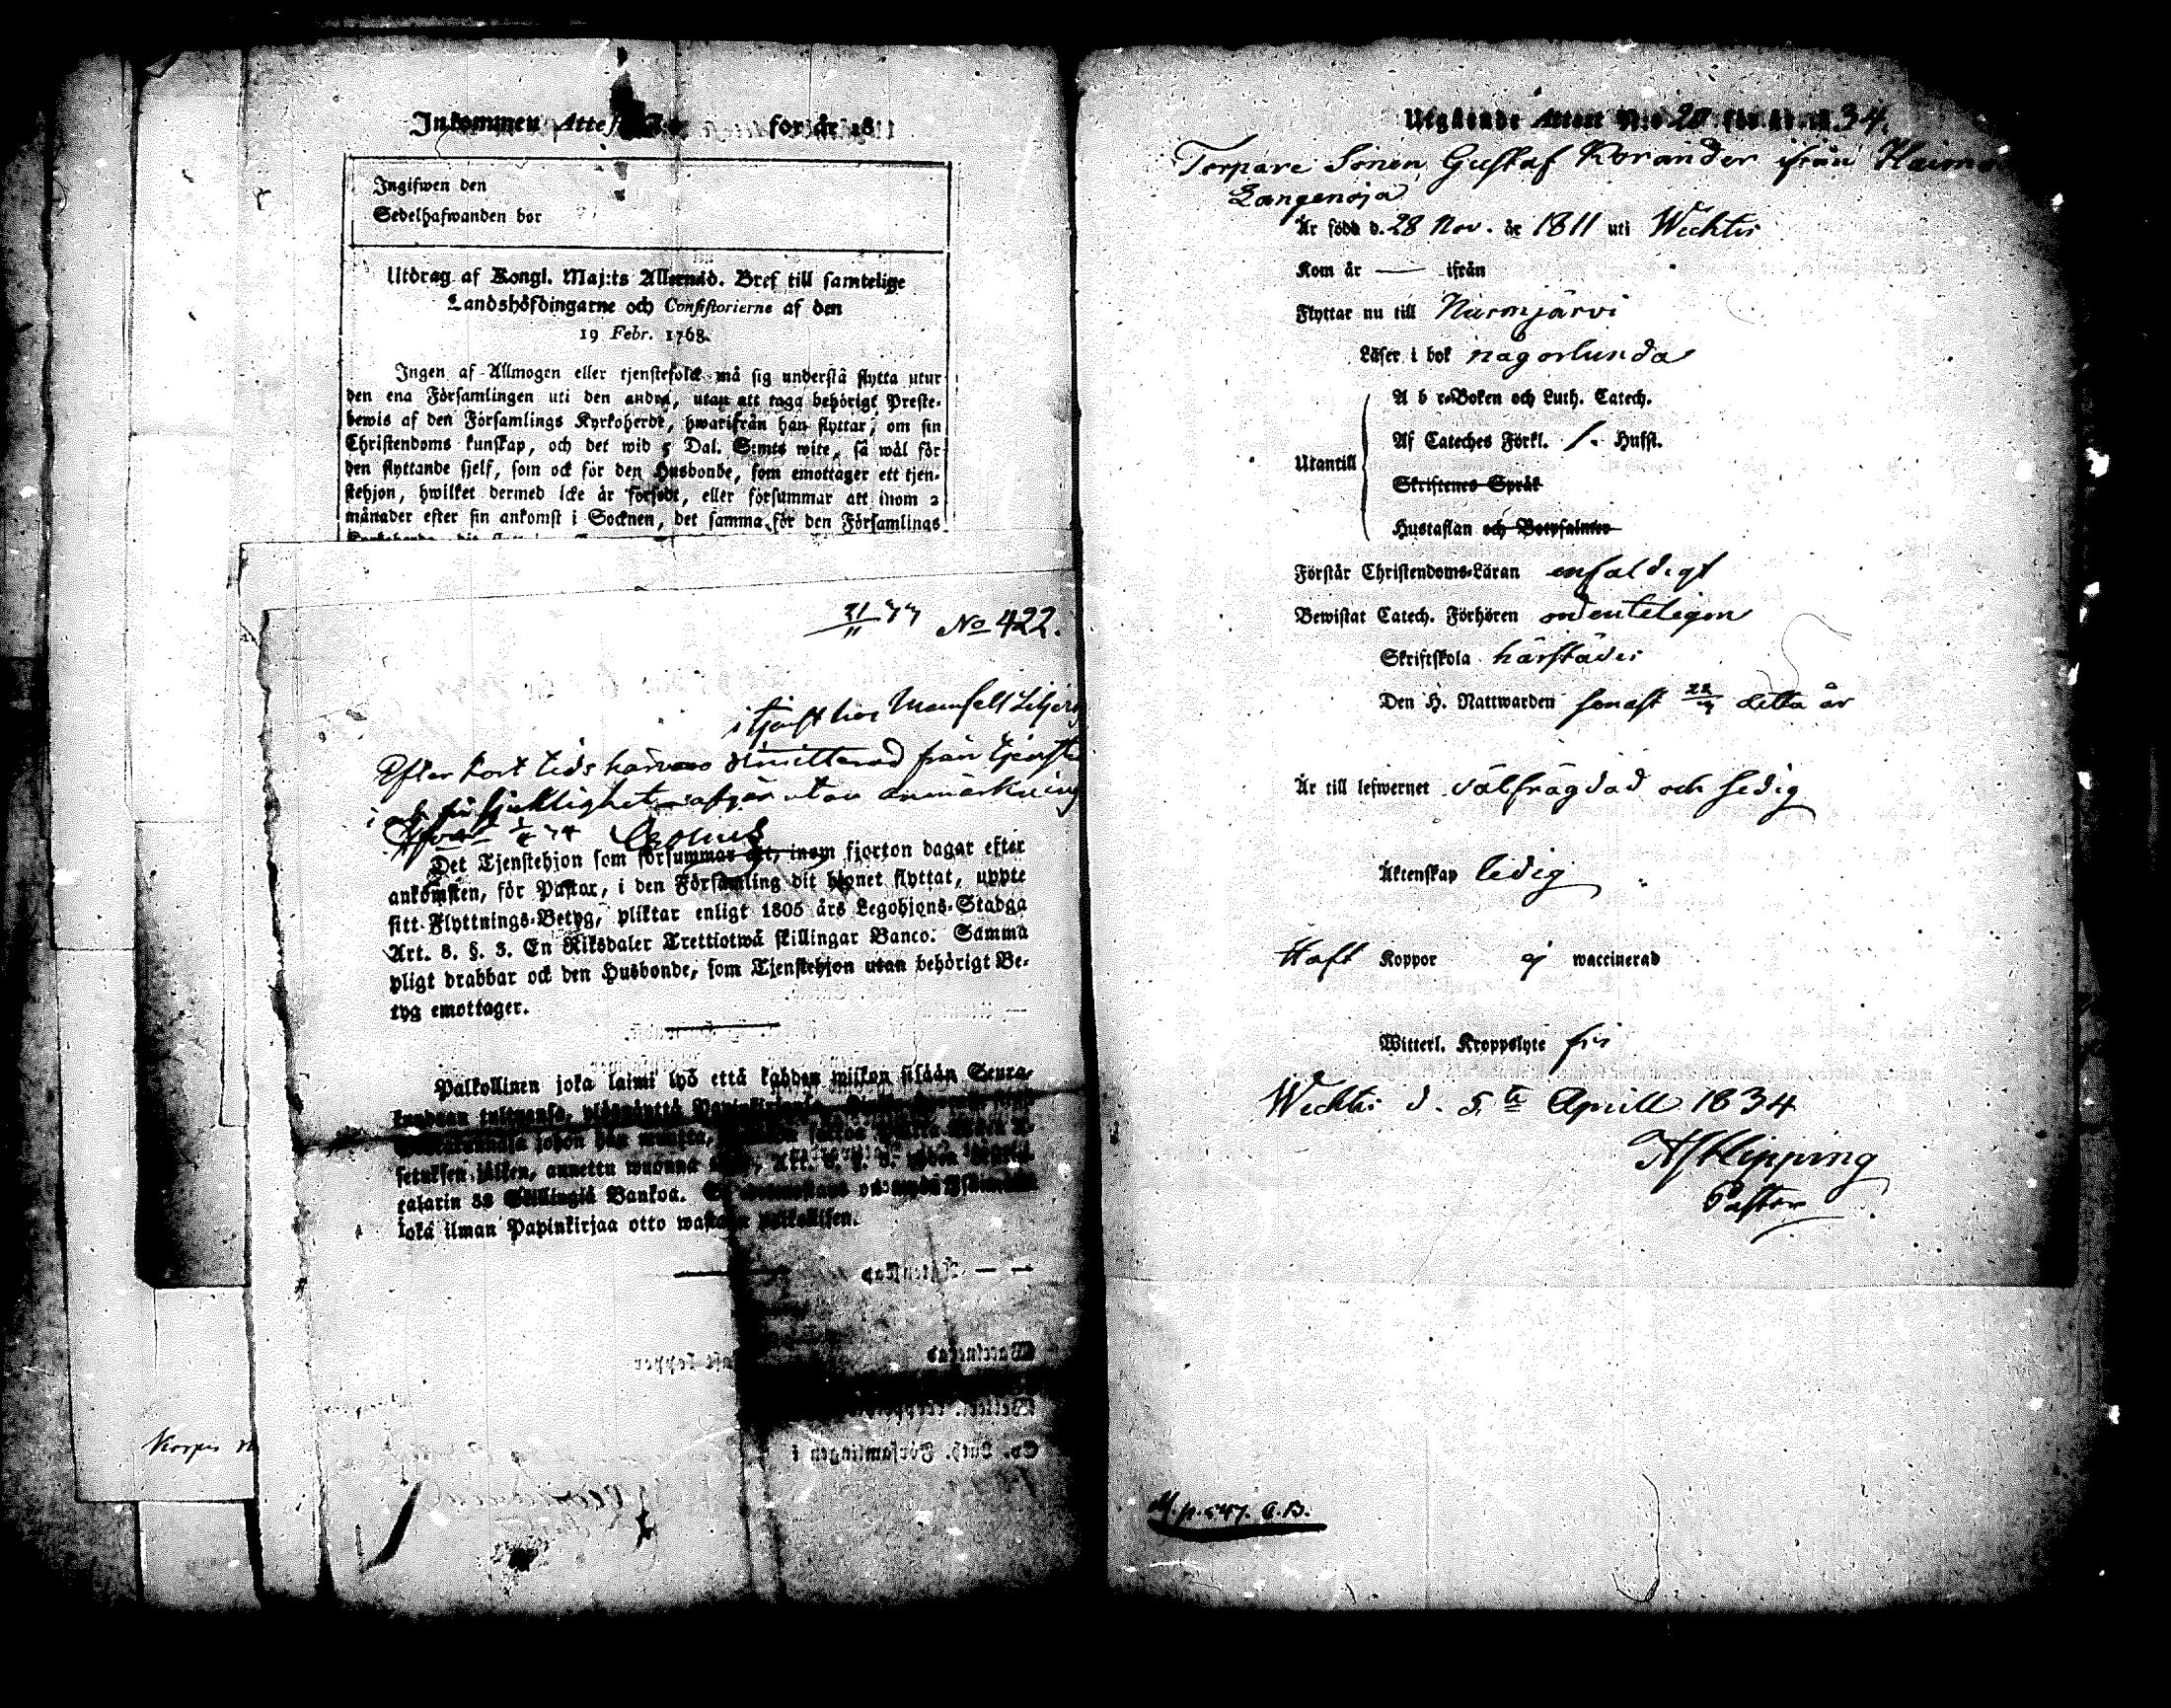 Inkommen Attest for år 18
Ingifwen den
Sedelhafwanden bor
Utdrag af Kongl. Maj:ts Allernåd. Bref till samtelige
Landshöfdingarne och Consistorierne af den
19 Febr. 1768.
Ingen af Allmogen eller tjenstefolck må sig understå flytta utur
den ena Församlingen uti den andra, utan att taga behörigt Preste-
bewis af den Församlings Kyrkoherde, hwarifrån han flyttar, om sin
Christendoms kunskap, och det wid 5 Dal. S:mts wite, så wäl för
den flyttande sjelf, som ock för den Husbonde, som emottager ett tjen-
stehjon, hwilket dermed icke är försedt, eller försummar att inom 2
månader efter sin ankomst i Socknen, det samma för den Församlings
21/11 77 No 422.
i tjenst hos Mamsell
Efter kort tids härvaro dimitterad från tjensten
sjuklighet afgår utan anmärkning
Det Tjenstehjon som försummar att, inom fjorton dagar efter
ankomsten, för Pastor, i den Församling dit hjonet flyttat, uppte
sitt Flyttnings-Betyg, pliktar enligt 1805 års Legohjons-Stadga
Art. 8. §. 3. En Riksdaler Trettiotwå skillingar Banco. Samma
pligt drabbar ock den Husbonde, som Tjenstehjon utan behörigt Be-
tyg emottager.
Palkollinen joka laimi lyö että kahden wiikon sisään Seura-
setuksen jälken, annettu wuonna
talarin 32 Skillingiä Bankoa.
joka ilman Papinkirjaa otto wastaan palkollisen.
Korpis
Utgående Attest N:o 20 för år 1834.
Torpare Sonen Gustaf Korander ifrån
Är född d. 28 Nov. år 1811 uti Wichtis
Kom år — ifrån
Flyttar nu till Nurmjärvi
Läser i bok någorlunda
Utantill
A b c-Boken och Luth. Catech.
Af Cateches Förkl. /. Hufst.
Skriftenes Språk
Hustaflan och Botpsalmer
Förstår Christendoms-Läran enfaldigt
Bewistat Catech. Förhören ordenteligen
Skriftskola härstädes
Den H. Nattwarden senast detta år
Är till lefwernet välfrägdad och sedig
Äktenskap ledig
Haft Koppor ej waccinerad
Witterl. Kroppslyte fri
Wichtis d. 5.te Aprill 1834
Af Hipping
Pastor
M. p. 547. C.B.